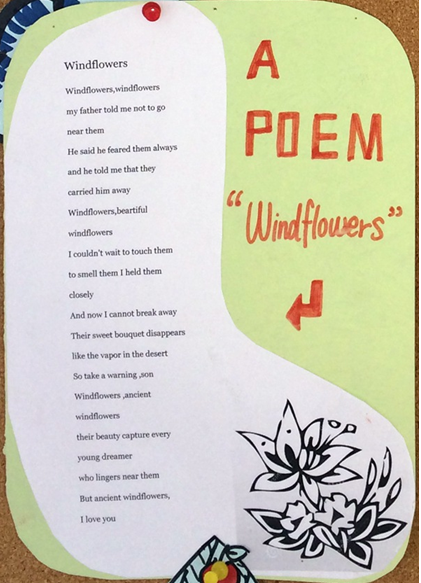 Windflowers
Windflowers,windflowers
my father told me not to go
near them
He said he feared them always
and he told me that they
carried him away
Windflowers,beartiful
windflowers
I couldn't wait to touch them
to smell them I held them
closely
And now I cannot break away
Their sweet bouquet disappears
like the vapor in the desert
So take a warning ,son
Windflowers ,ancient
windflowers
their beauty capture every
young dreamer
who lingers near them
But ancient windflowers,
I love you
A
POEM
“Windflowers”